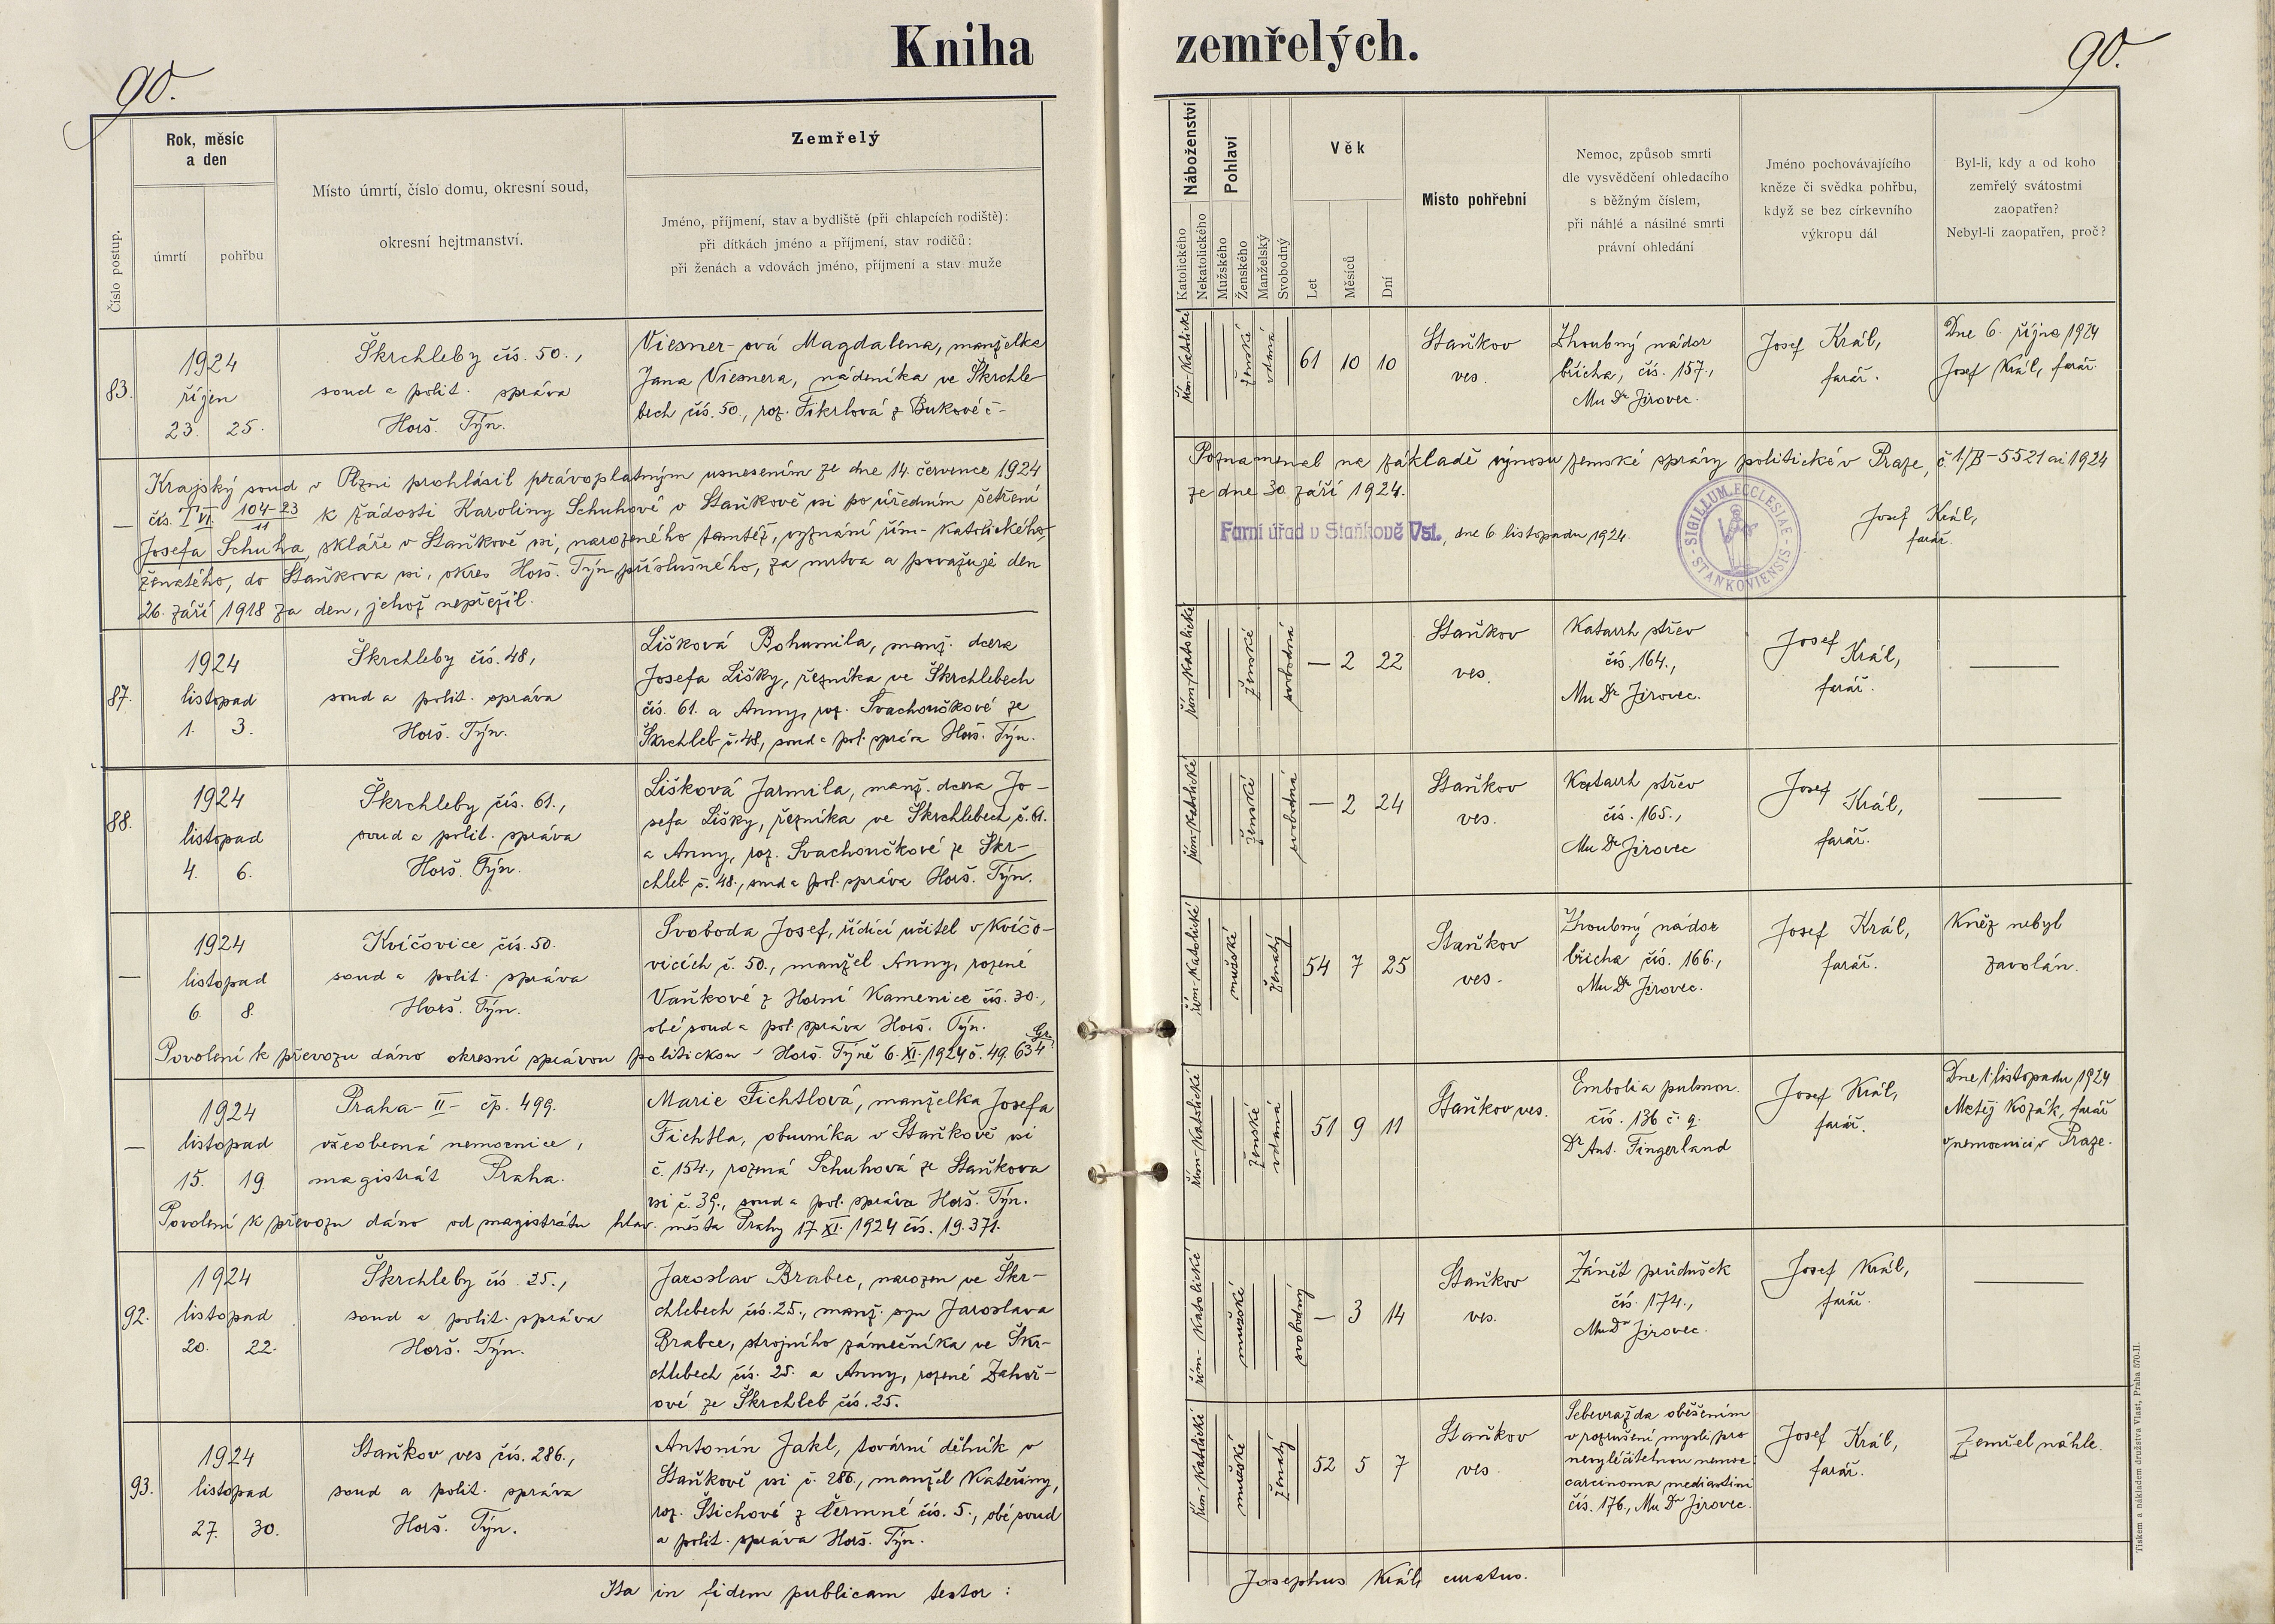 Kniha zemřelých.
90.
90.
Číslo postup.
Rok, měsíc
a den
úmrtí
pohřbu
Místo úmrtí, číslo domu, okresní soud,
okresní hejtmanství.
Zemřelý
Jméno, příjmení, stav a bydliště (při chlapcích rodiště):
při dítkách jméno a příjmení, stav rodičů:
při ženách a vdovách jméno, příjmení a stav muže
Náboženství
Katolického
Nekatolického
Pohlaví
Mužského
Ženského
Manželský
Svobodný
Věk
Let
Měsíců
Dní
Místo pohřební
Nemoc, způsob smrti
dle vysvědčení ohledacího
s běžným číslem,
při náhlé a násilné smrti
právní ohledání
Jméno pochovávajícího
kněze či svědka pohřbu,
když se bez církevního
výkropu dál
Byl-li, kdy a od koho
zemřelý svátostmi
zaopatřen?
Nebyl-li zaopatřen, proč?
83.
1924
říjen
23. 25.
Škrchleby čís. 50.,
soud a polit. správa
Horš. Týn.
Viesner-ová Magdalena, manželka
Jana Viesnera, nádeníka ve Škrchle-
bech čís. 50., roz. Fikrlová z Bukové č-
řím-katolické
ženské
vdaná
61 10 10
Staňkov
ves.
Zhoubný nádor
břicha, čís. 157.,
Mu Dr Jirovec.
Josef Král,
farář.
Dne 6. října 1924
Josef Král, farář.
—
Krajský soud v Plzni prohlásil právoplatným usnesením ze dne 14. července 1924
čís. T VI. 104-23/11 k žádosti Karoliny Schuhové v Staňkově vsi po úředním šetření
Josefa Schuha, skláře v Staňkově vsi, narozeného tamtéž, vyznání řím-katolického,
ženatého, do Staňkova vsi, okres Horš. Týn příslušného, za mrtva a považuje den
26. září 1918 za den, jehož nepřežil.
Poznamenal na základě výnosu zemské správy politické v Praze, č. 1/B-5521 ai 1924
ze dne 30. září 1924.
Farní úřad v Staňkově Vsi., dne 6. listopadu 1924.
SIGILLUM ECCLESIAE STANKOVIENSIS
Josef Král,
farář.
87.
1924
listopad
1. 3.
Škrchleby čís. 48,
soud a polit. správa
Horš. Týn.
Lišková Bohumila, manž. dcera
Josefa Lišky, řezníka ve Škrchlebech
čís. 61. a Anny, roz. Svachoučkové ze
Škrchleb č. 48, soud a pol. správa Horš. Týn.
řím-katolické
ženské
svobodná
— 2 22
Staňkov
ves.
Katarrh střev
čís. 164.,
Mu Dr Jirovec.
Josef
Král,
farář.
88.
1924
listopad
4. 6.
Škrchleby čís. 61.,
soud a polit. správa
Horš. Týn.
Lišková Jarmila, manž. dcera Jo-
sefa Lišky, řezníka ve Škrchlebech č. 61.
a Anny, roz. Svachoučkové ze Škr-
chleb č. 48., soud a pol. správa Horš. Týn.
řím-katolické
ženské
svobodná
— 2 24
Staňkov
ves.
Katarrh střev
čís. 165.,
Mu Dr Jirovec
Josef
Král,
farář.
—
1924
listopad
6. 8.
Kvíčovice čís. 50.
soud a polit. správa
Horš. Týn.
Svoboda Josef, řídící učitel v Kvíčo-
vicích č. 50., manžel Anny, rozené
Vaňkové z Horní Kamenice čís. 30.,
obé soud a pol. správa Horš. Týn.
Povolení k převozu dáno okresní správou politickou v Horš. Týně 6. XI. 1924 č. 49.634 Gr.
řím-katolické
mužské
ženatý
54 7 25
Staňkov
ves.
Zhoubný nádor
břicha čís. 166.,
Mu Dr Jirovec.
Josef Král,
farář.
Kněz nebyl
zavolán.
—
1924
listopad
15. 19
Praha-II- čp. 499.
všeobecná nemocnice,
magistrát Praha.
Marie Fichtlová, manželka Josefa
Fichtla, obuvníka v Staňkově vsi
č. 154., rozená Schuhová ze Staňkova
vsi č. 39., soud a pol. správa Horš. Týn.
Povolení k převozu dáno od magistrátu hlav. města Prahy 17. XI. 1924 čís. 19.371.
řím-katolické
ženské
vdaná
51 9 11
Staňkov ves.
Embolia pulmon.
čís. 136 č. q.
Dr Ant. Fingerland
Josef Král,
farář.
Dne 1. listopadu 1924
Matěj Kozák, farář
v nemocnici v Praze.
92.
1924
listopad
20. 22.
Škrchleby čís. 25.,
soud a polit. správa
Horš. Týn.
Jaroslav Brabec, narozen ve Škr-
chlebech čís. 25., manž. syn Jaroslava
Brabce, strojního zámečníka ve Škr-
chlebech čís. 25. a Anny, rozené Zahoř-
ové ze Škrchleb čís. 25.
řím-katolické
mužské
svobodný
— 3 14
Staňkov
ves.
Zánět průdušek
čís. 174.,
Mu Dr Jirovec.
Josef Král,
farář.
93.
1924
listopad
27. 30.
Staňkov ves čís. 286.,
soud a polit. správa
Horš. Týn.
Antonín Jakl, tovární dělník v
Staňkově vsi č. 286., manžel Kateřiny,
roz. Štichové z Čermné čís. 5., obé soud
a polit. správa Horš. Týn.
řím-katolické
mužské
ženatý
52 5 7
Staňkov
ves.
Sebevražda oběšením
v rozrušení mysli pro
nevyléčitelnou nemoc
carcinoma mediastini
čís. 176., Mu Dr Jirovec.
Josef Král,
farář.
Zemřel náhle.
Ita in fidem publicam testor:
Josephus Král, curatus.
Tiskem a nákladem družstva Vlast, Praha 570-II.